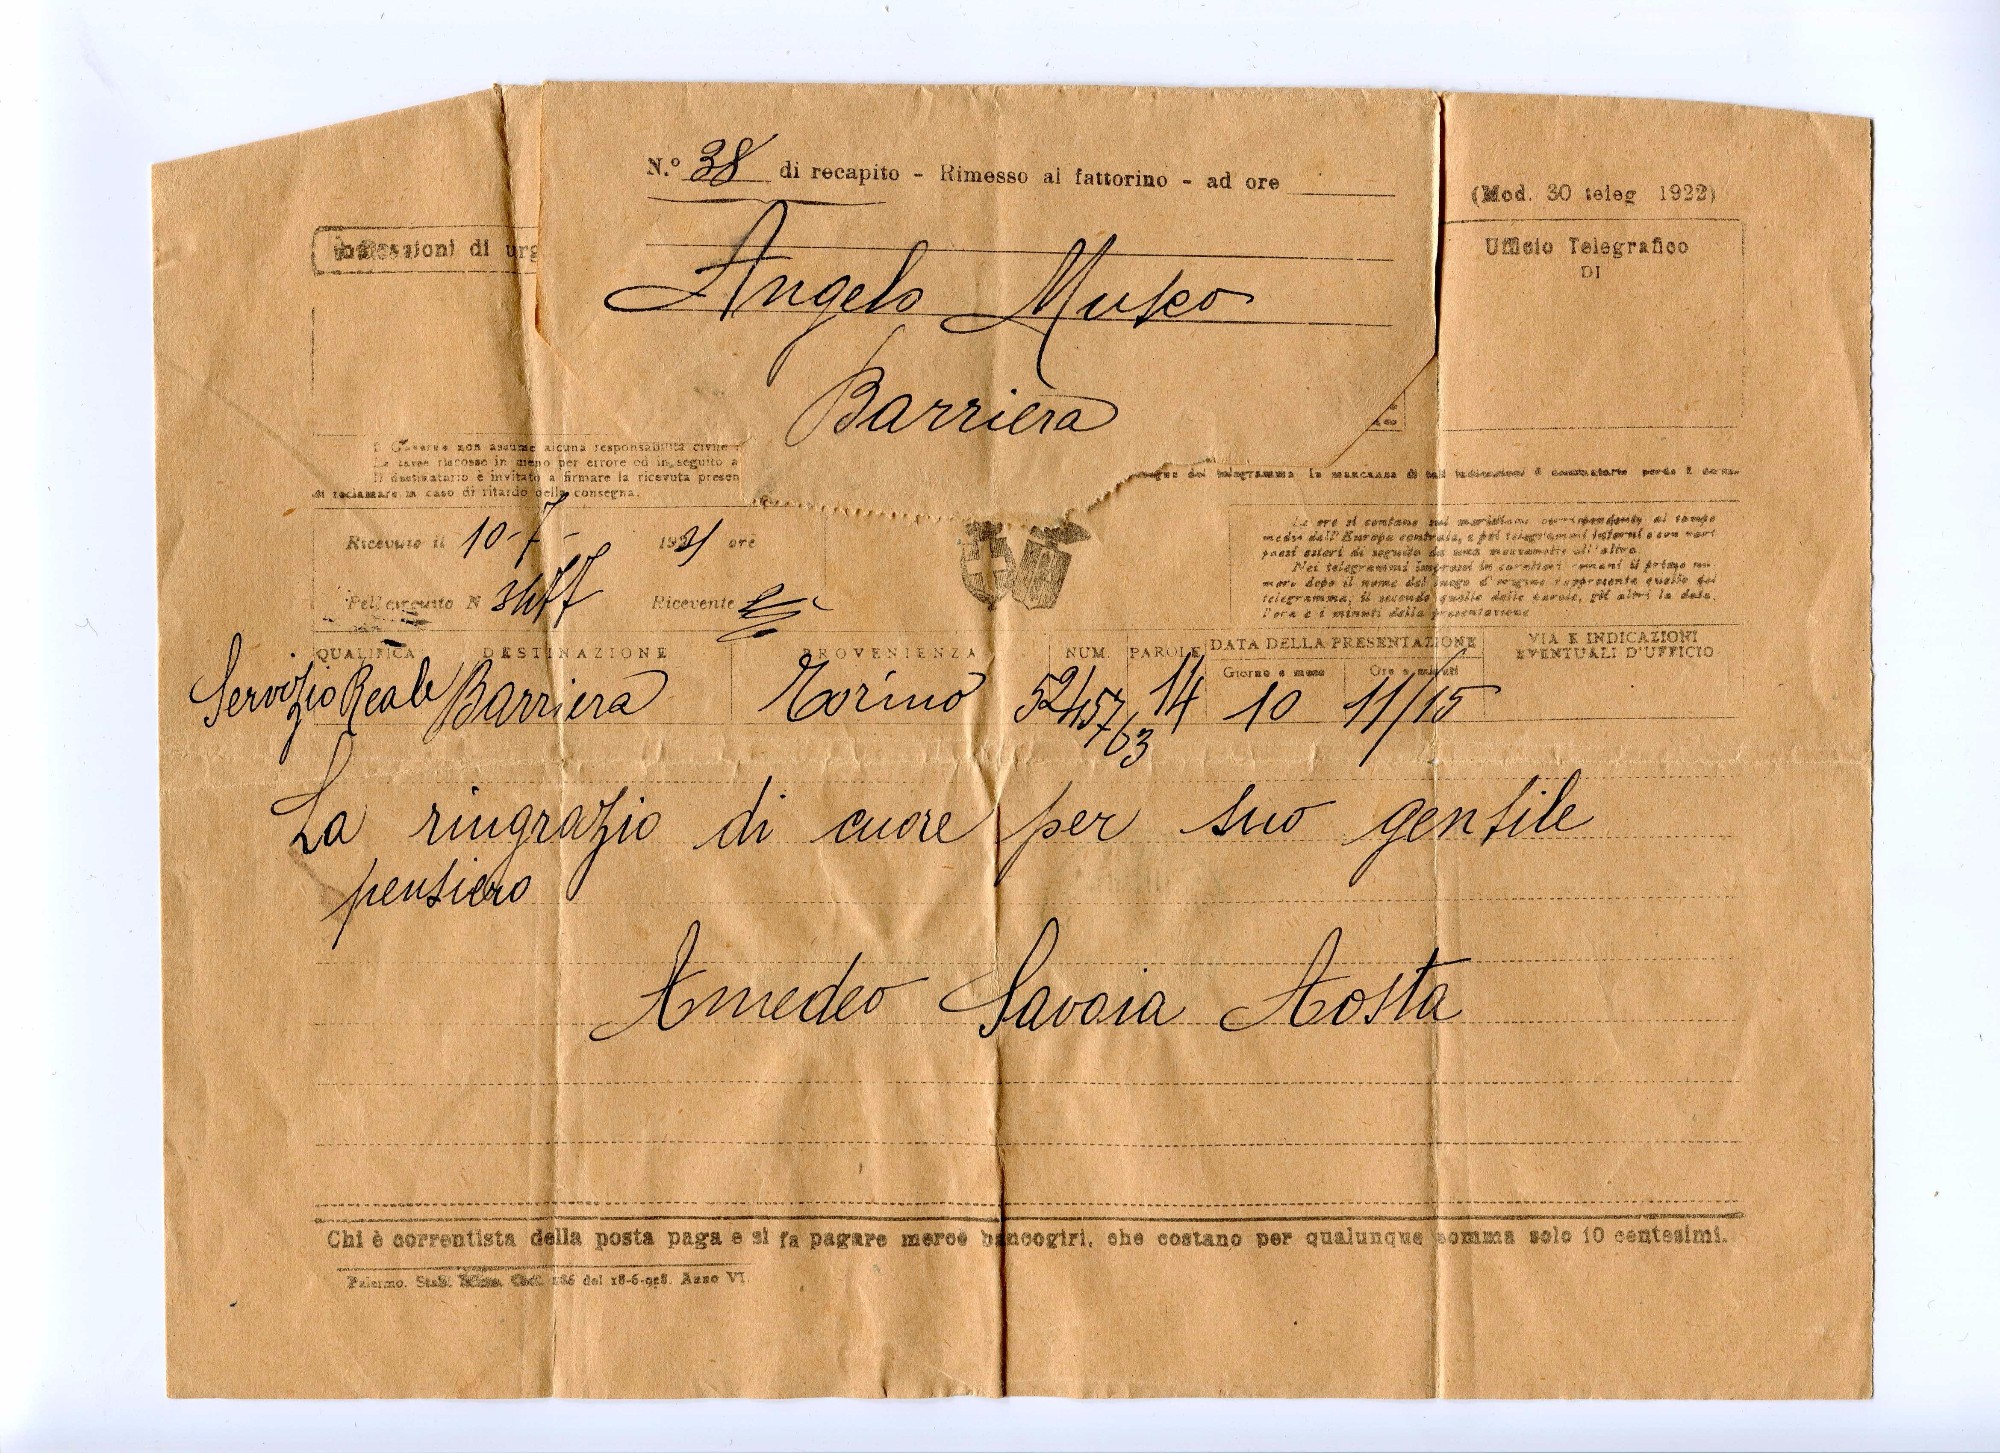 N.º 38 di recapito - Rimesso al fattorino - ad ore
(Mod. 30 teleg 1922)
Indicazioni di urg
Ufficio Telegrafico
DI
Angelo Musco
Barriera
Il Governo non assume alcuna responsabilità civile
Le tasse riscosse in meno per errore od in seguito a
Il destinatario è invitato a firmare la ricevuta presen
di reclamare in caso di ritardo della consegna.
Ricevuto il 10-7- 1931 ore
Pel circuito N 3477 Ricevente
Le ore si contano sul meridiano corrispondente al tempo
medio dell'Europa centrale, e pei telegrammi interni e con vari
paesi esteri di seguito da una mezzanotte all'altra.
Nei telegrammi impressi in caratteri romani il primo nu-
mero dopo il nome del luogo d'origine rappresenta quello del
telegramma, il secondo quello delle parole, gli altri la data,
l'ora e i minuti della presentazione
QUALIFICA DESTINAZIONE PROVENIENZA NUM. PAROLE DATA DELLA PRESENTAZIONE VIA E INDICAZIONI
EVENTUALI D'UFFICIO
Giorno e mese Ore e minuti
Servizio Reale Barriera Torino 52457/63 14 10 11/15
La ringrazio di cuore per suo gentile
pensiero
Amedeo Savoia Aosta
Chi è correntista della posta paga e si fa pagare mercè bancogiri, che costano per qualunque somma solo 10 centesimi.
Palermo. Stab. del 18-6-928. Anno VI